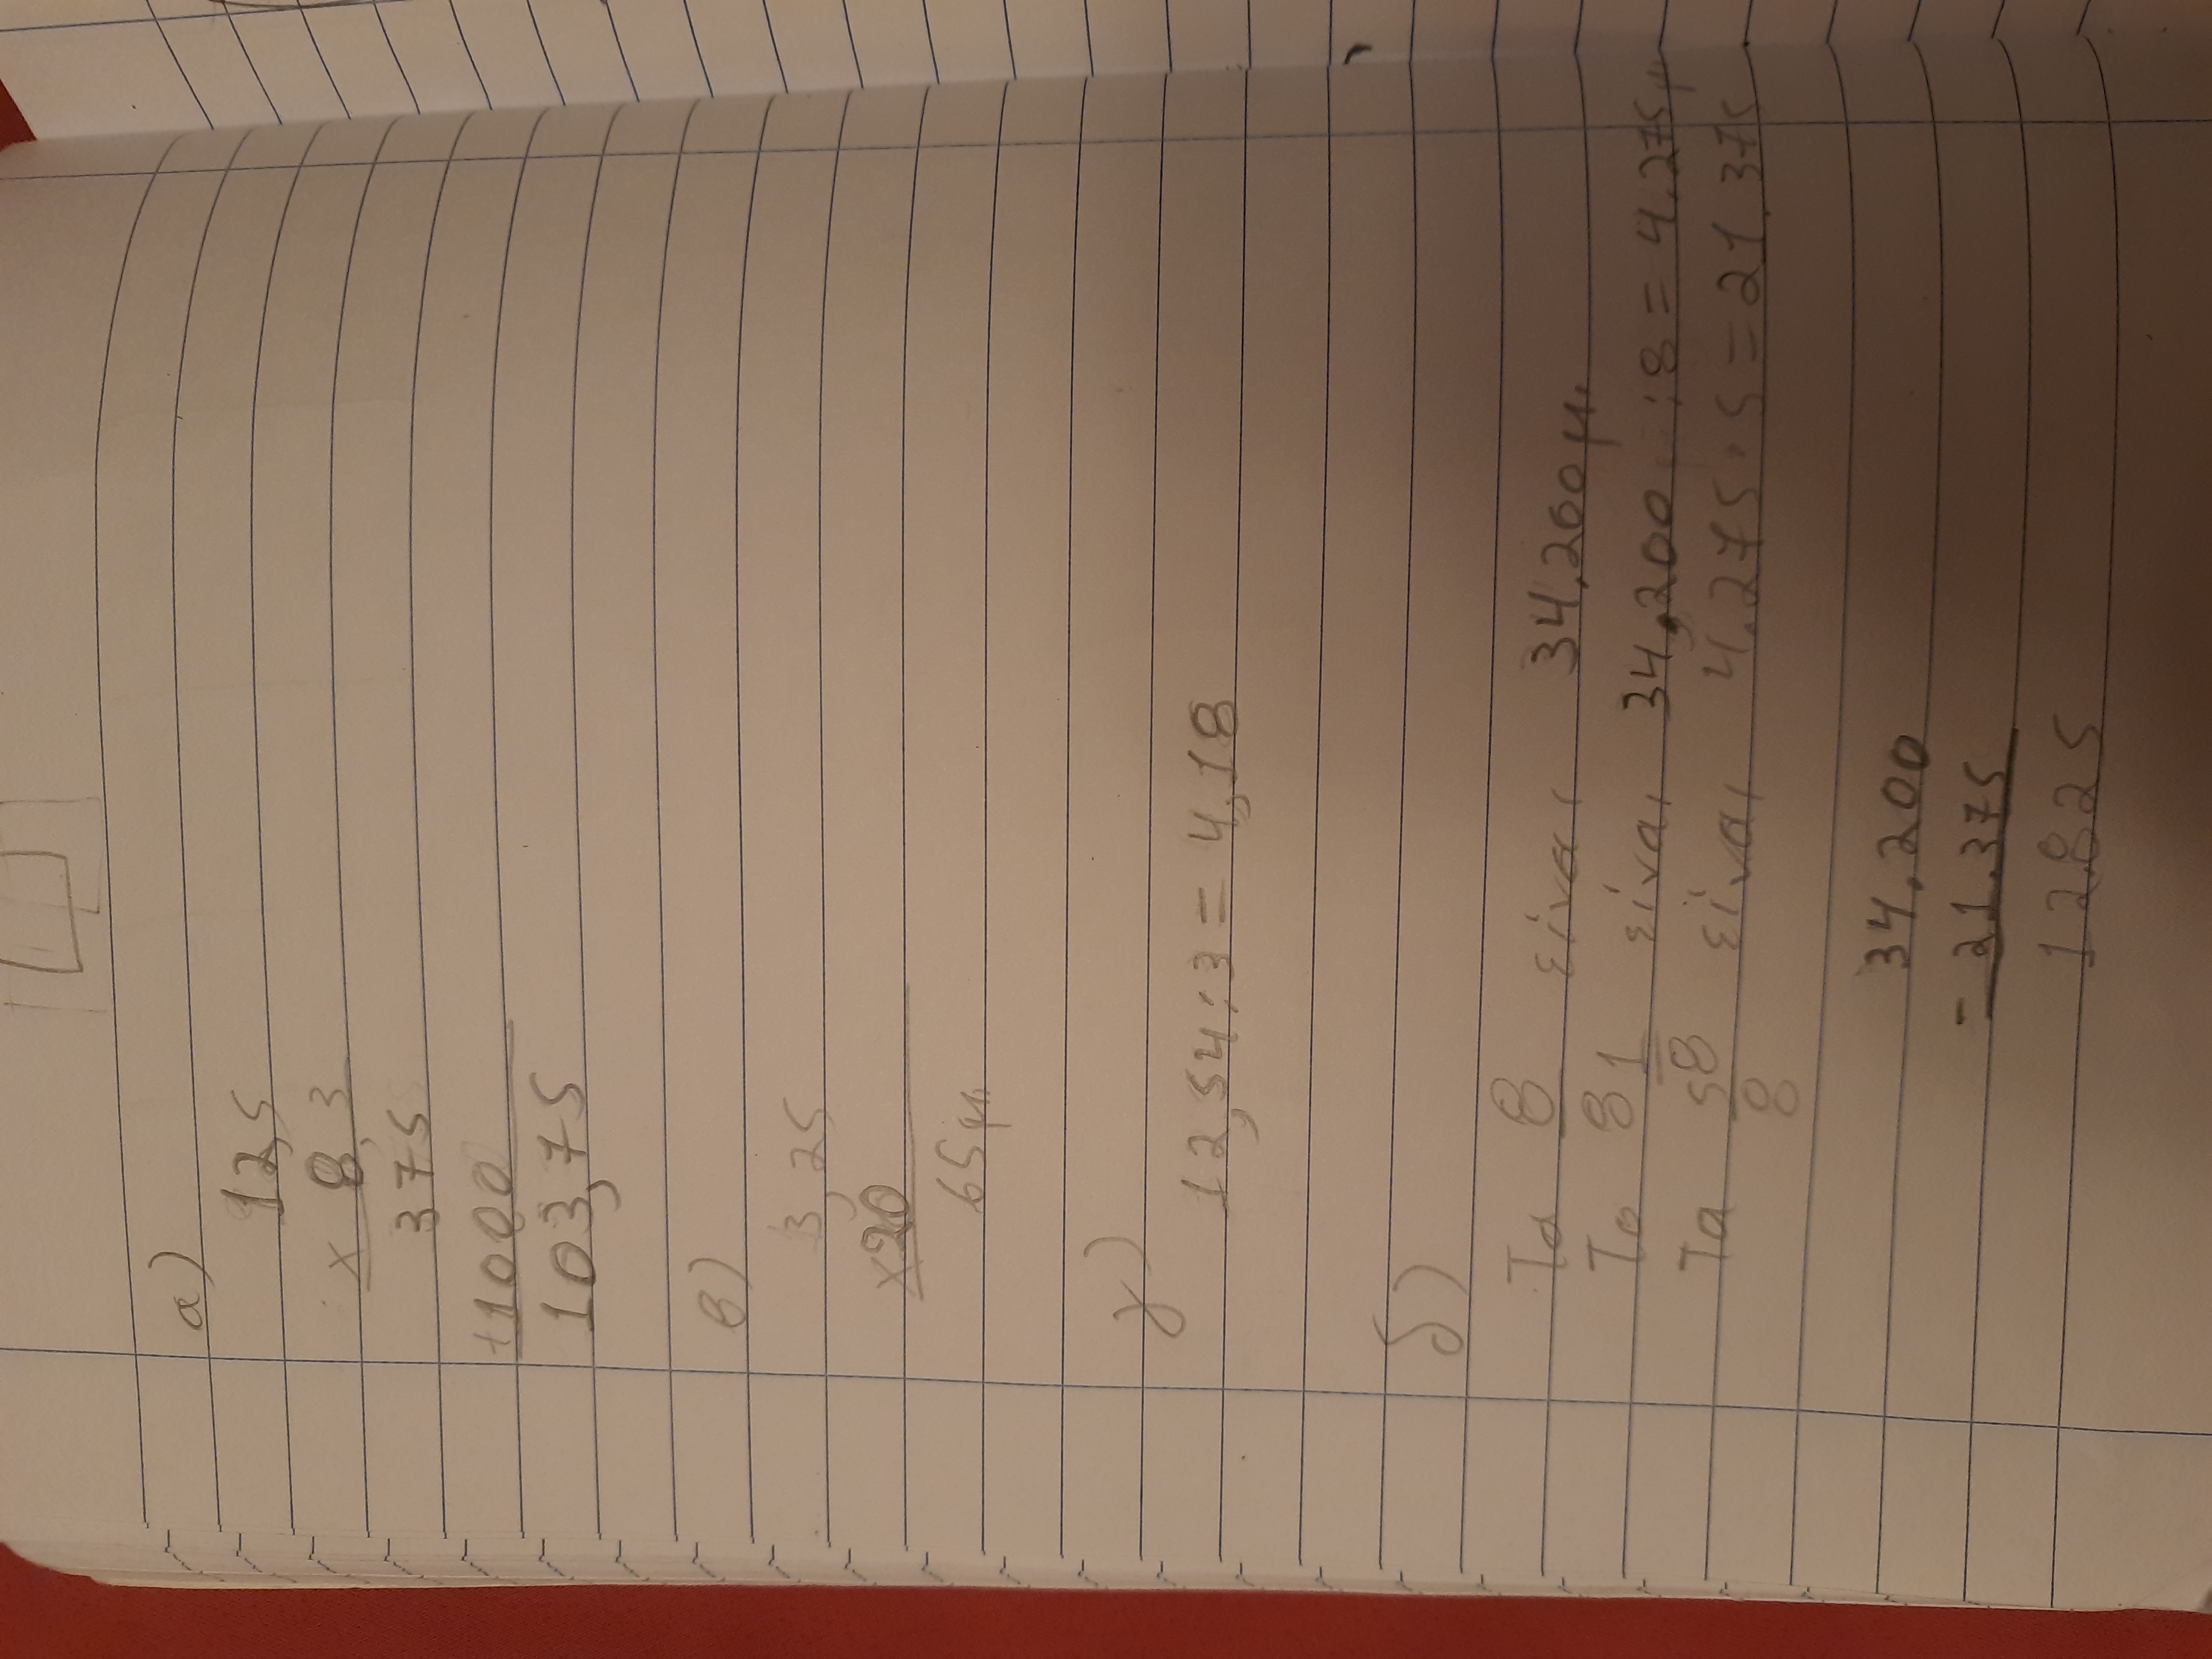 α)
12,5
x 8,3
375
+1000
103,75
β)
3,25
x20
65μ.
γ)
12,54:3=4,18
δ)
Τα 8/8 είναι 34.200μ.
Το 1/8 είναι 34.200:8=4.275μ
Τα 5/8 είναι 4.275.5=21.375
34.200
-21.375
12825